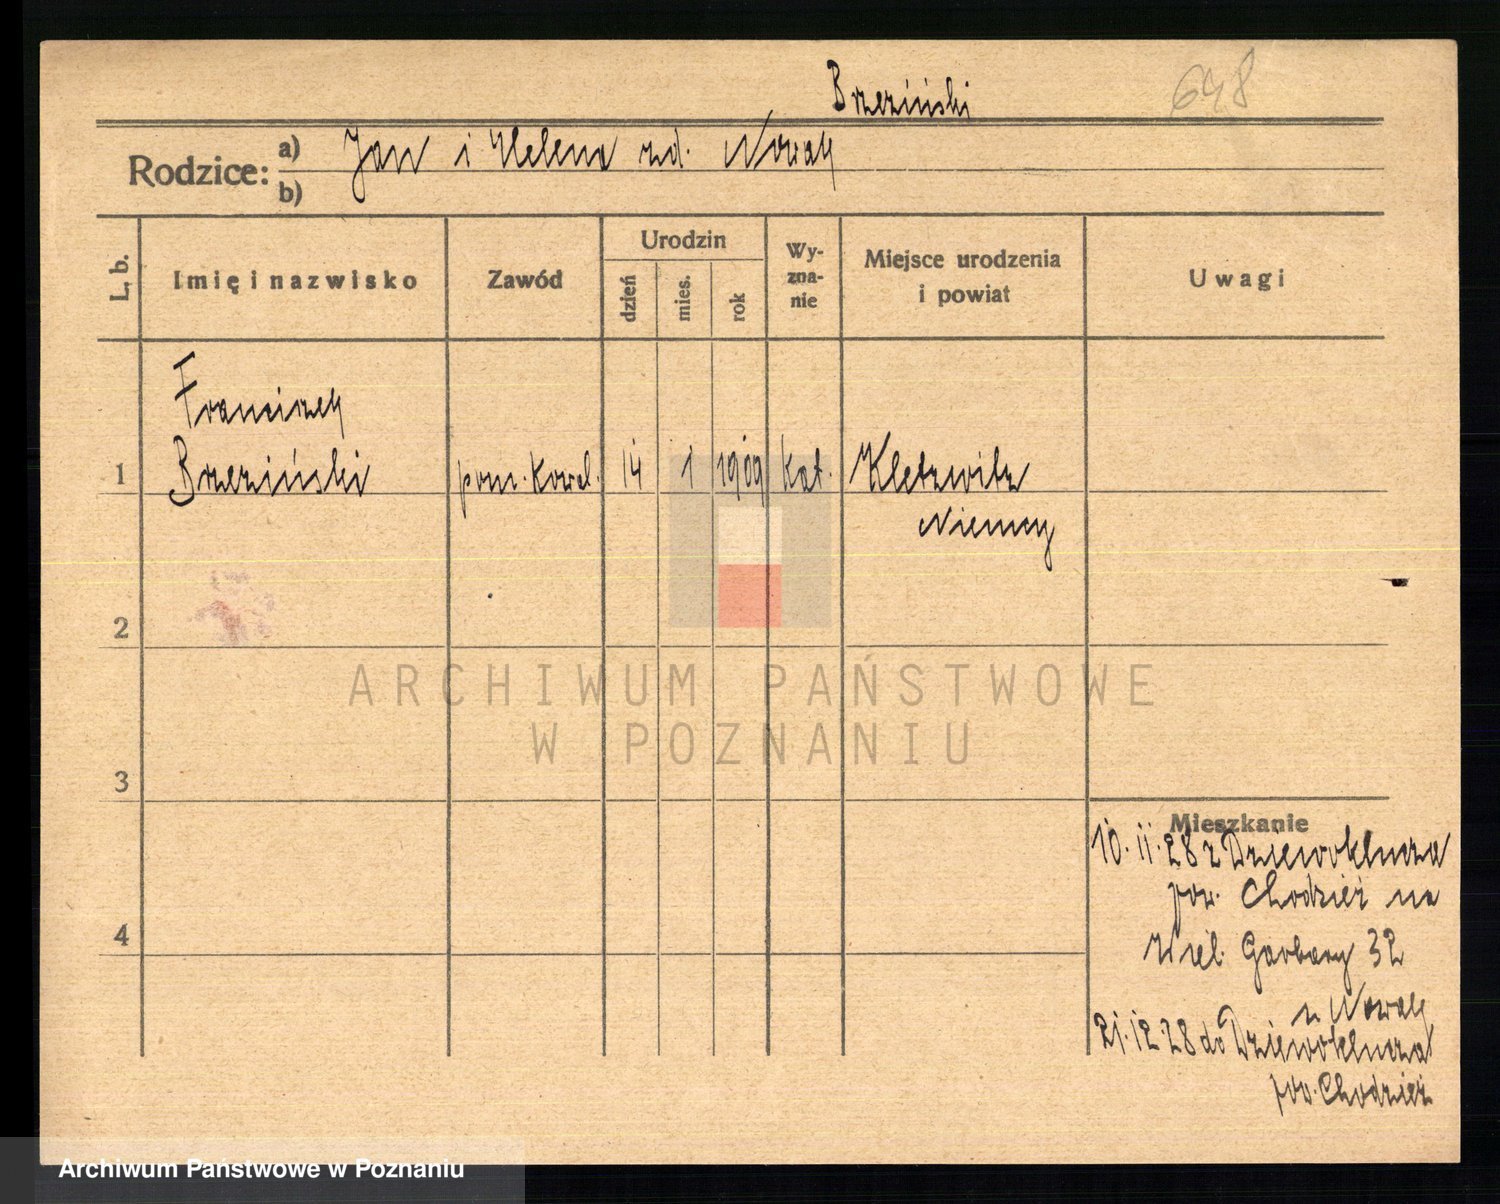 Brzeziński 648
Rodzice: a) Jan i Helena zd. Nowak
b)
L. b. Imię i nazwisko Zawód Urodzin dzień mies. rok Wyznanie Miejsce urodzenia i powiat Uwagi
Franciszek
1 Brzeziński pom. Kowal. 14 1 1909 kat. Kletzwitz
Niemcy
2
3
4
Mieszkanie
10.11.28 z Dziewoklucza
pow. Chodzież na
Wiel. Garbary 32
u Nowak
21.12.28 do Dziewoklucza
pow. Chodzież
ARCHIWUM PAŃSTWOWE
W POZNANIU
Archiwum Państwowe w Poznaniu